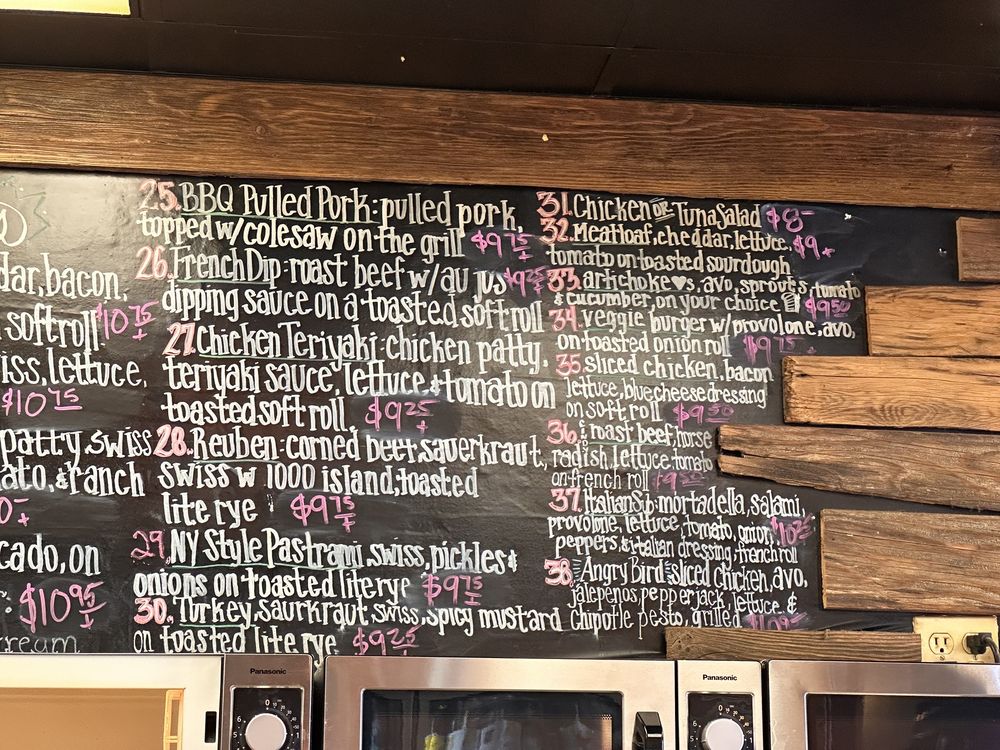 dar, bacon,
soft roll $10 75 +
iss, lettuce,
$10 75
patty, swiss
ato, & ranch
0 - +
cado, on
$10 95 +
ream
25. BBQ Pulled Pork: pulled pork,
topped w/ colesaw on the grill $9 75 +
26. French Dip: roast beef w/ au jus
dipping sauce on a toasted soft roll
27. Chicken Teriyaki: chicken patty,
teriyaki sauce, lettuce, & tomato on
toasted soft roll. $9 25 +
28. Reuben: corned beef, sauerkraut,
swiss w 1000 island, toasted
lite rye $9 75 +
29. NY Style Pastrami, swiss, pickles &
onions on toasted lite rye $9 75 +
30. Turkey, saurkraut, swiss, spicy mustard
on toasted lite rye $9 25 +
31. Chicken or Tuna Salad $8-
32. Meatloaf, cheddar, lettuce, $9+
tomato on toasted sourdough
33. artichoke ♥s, avo, sprouts, tomato
& cucumber, on your choice $9 50
34. veggie burger w/ provolone, avo,
on toasted onion roll $9 75 +
35 sliced chicken, bacon
lettuce, blue cheese dressing
on soft roll $9 50
36. roast beef, horse
radish, lettuce, tomato
on french roll
37. Italian Sub: mortadella, salami,
provolone, lettuce, tomato, onion,
peppers, & italian dressing, french roll
38. Angry Bird sliced chicken, avo,
jalepenos, pepper jack, lettuce, &
chipotle pesto, grilled
Panasonic
Panasonic